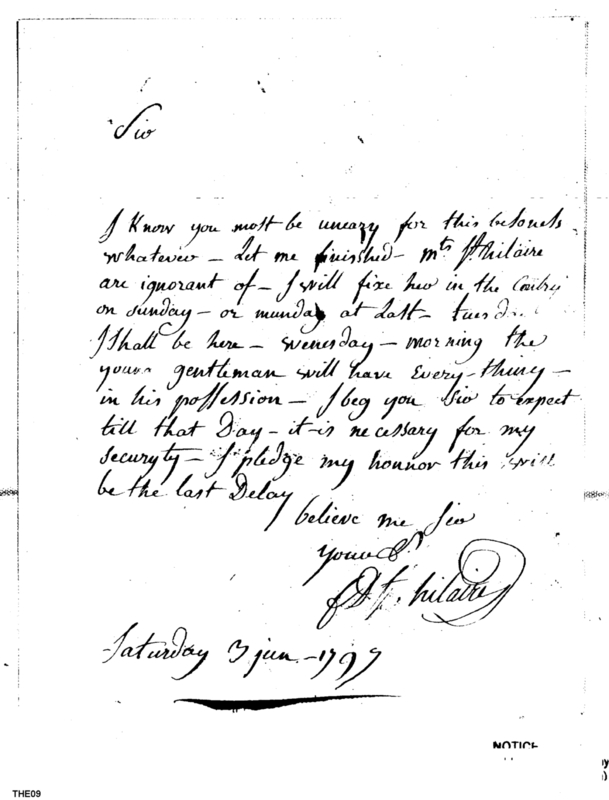 Sir
I Know you most be uneazy for this belonels
whatever – Let me finished – mrs St. hilaire
are ignorant of – I will fixe her in the Contry
on sunday – or munday at Last – tuesd
I Shall be here – wenesday – morning the
young gentleman will have Every-thing –
in his possession – I beg you Sir to expect
till that Day – it-is necessary for my
securyty – I pledge my honnor this will
be the last Delay
believe me Sir
your
St. hilaire
Saturday 3 jun – 1797
NOTICE
THE09